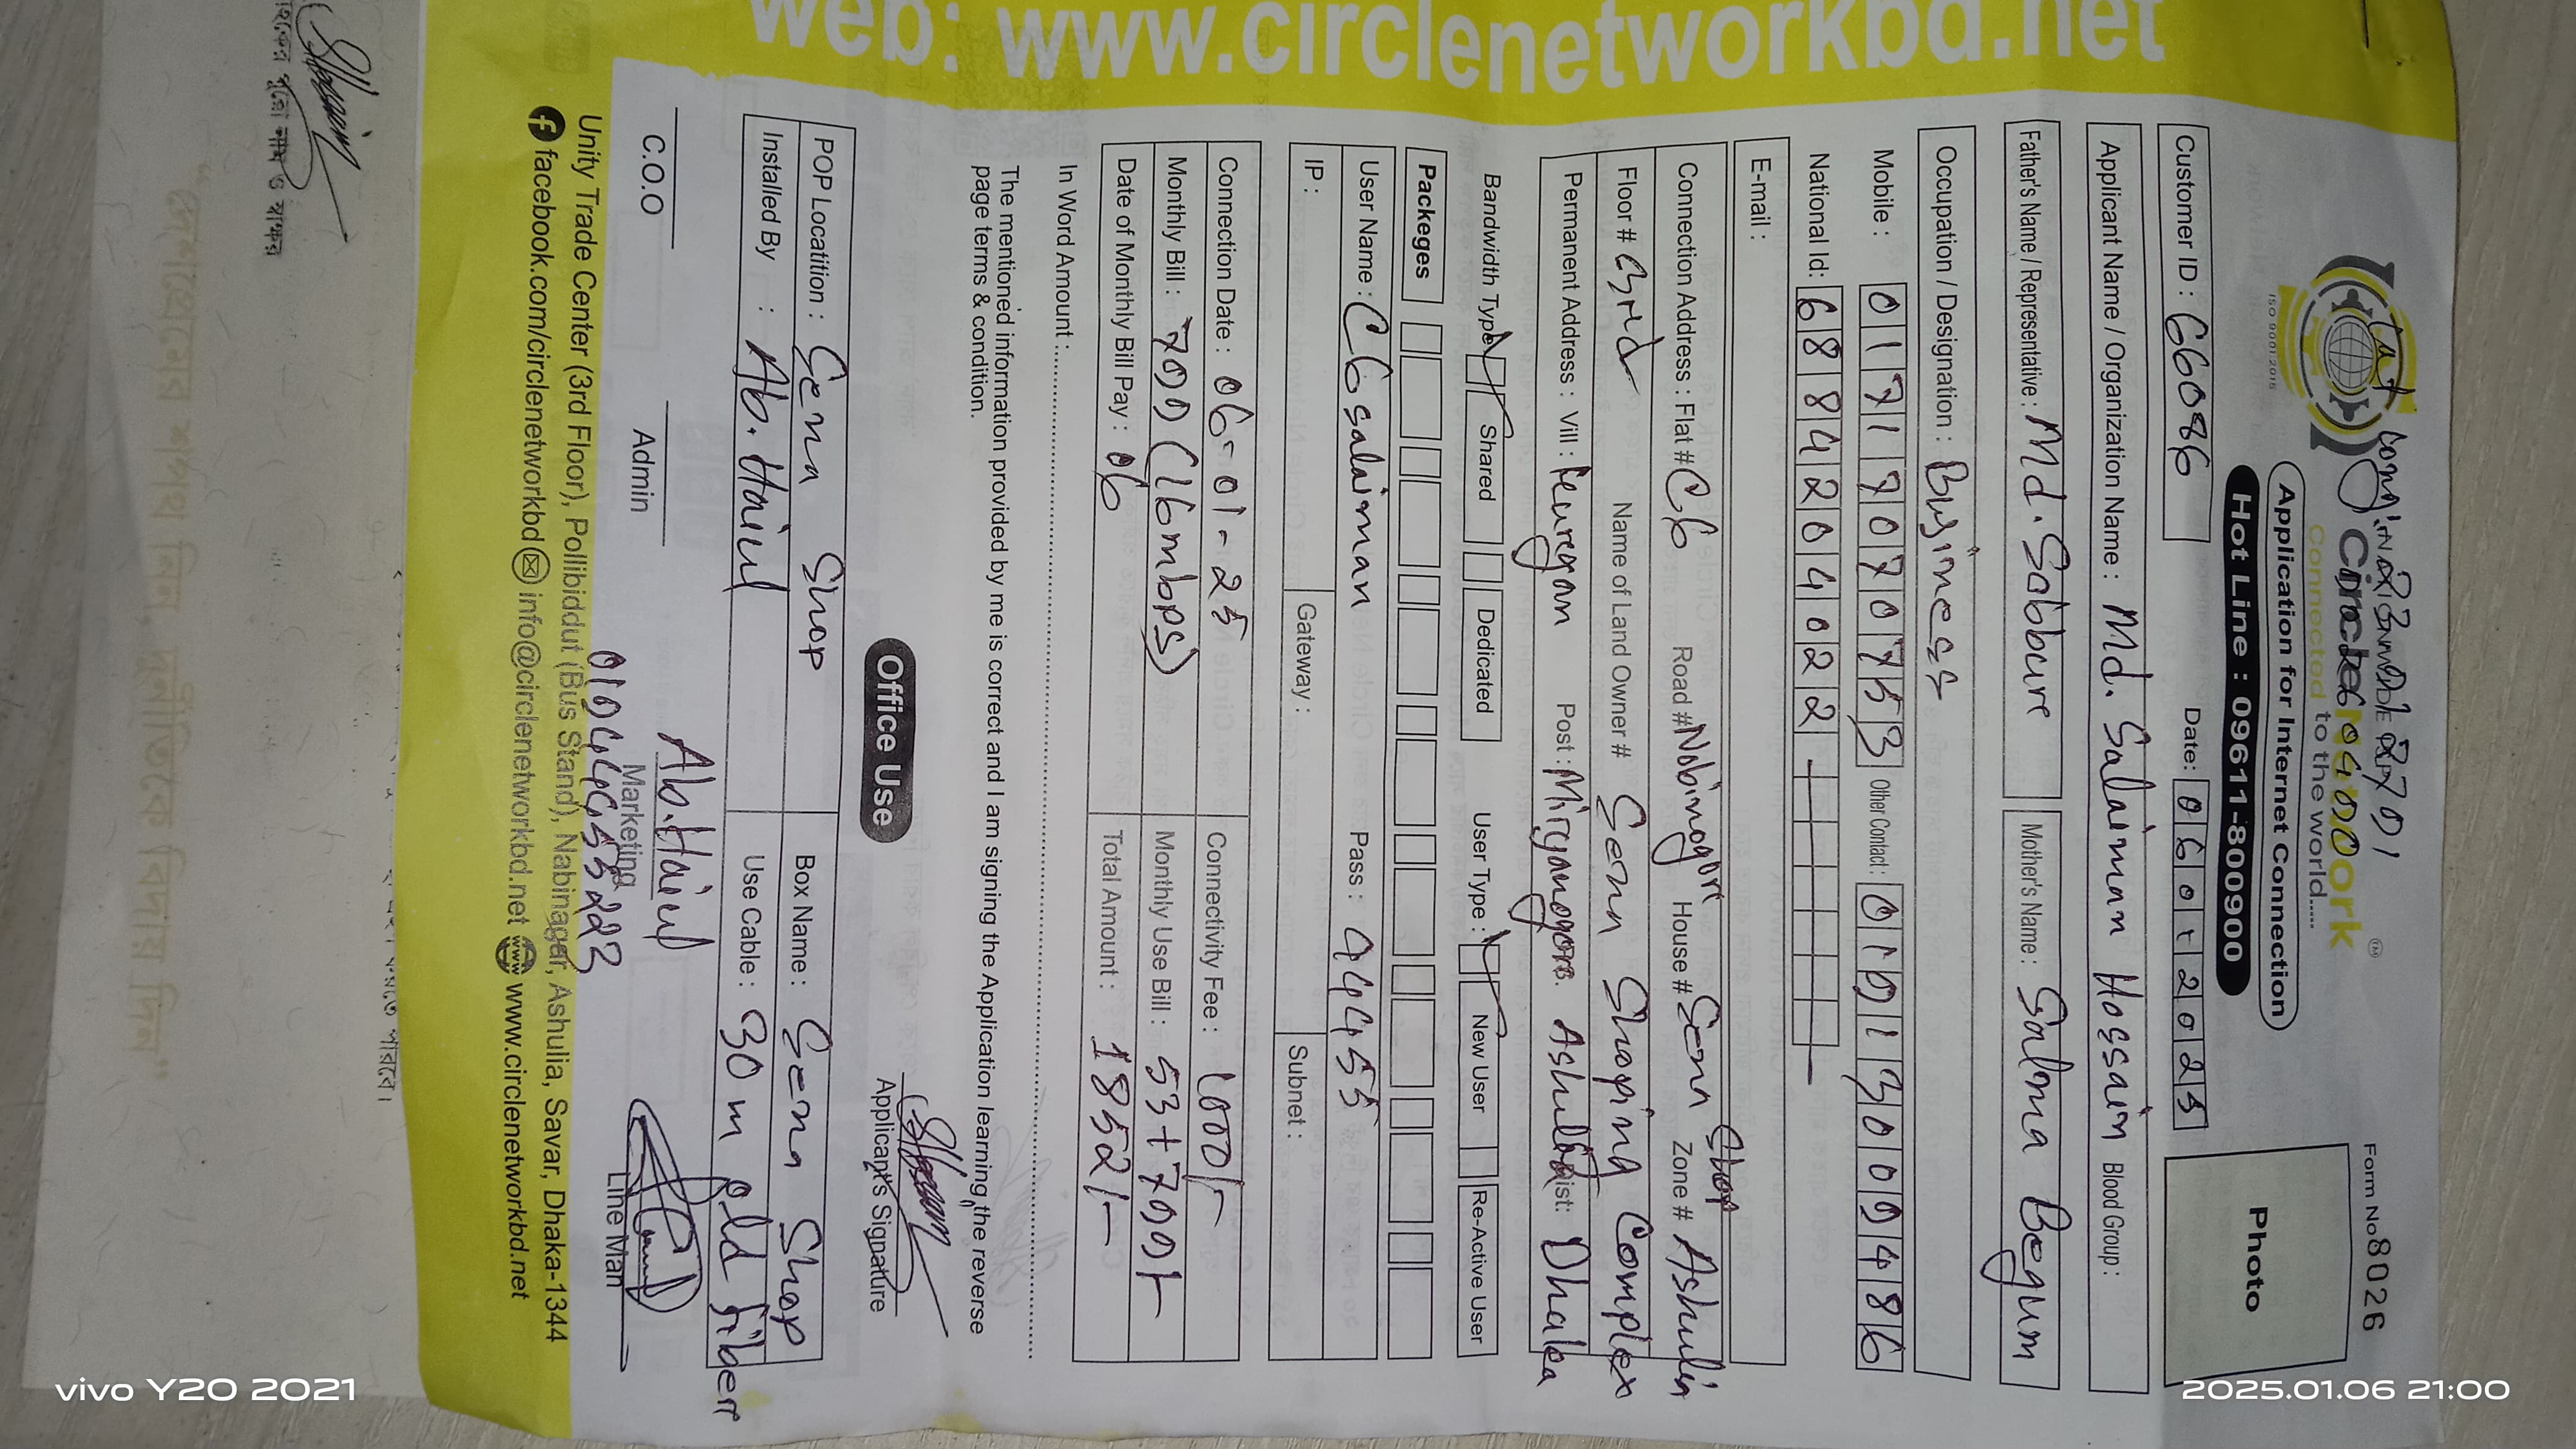 web: www.circlenetworkbd.net
Form No 8026
Circle Network
Connected to the world.....
ISO 9001:2015
Application for Internet Connection
Hot Line : 09611-800900
Photo
Customer ID : 66086 Date: 06 01 2025
Applicant Name / Organization Name : Md. Salaiman Hossain Blood Group :
Father's Name / Representative : Md. Sobbure Mother's Name : Salma Begum
Occupation / Designation : Business
Mobile : 01717070753 Other Contact: 01913000486
National Id: 6884204022
E-mail :
Connection Address : Flat # C6 Road # Nobinagore House # Sena Shop Zone # Ashulia
Floor # 3rd Name of Land Owner # Sena Shoping Complex
Permanent Address : Vill : Post : Ashulia Dist: Dhaka
Bandwidth Type Shared Dedicated User Type : New User Re-Active User
Packeges
User Name : C6salaiman Pass : 44455
IP : Gateway : Subnet :
Connection Date : 06-01-25 Connectivity Fee : 1000/-
Monthly Bill : 700 (16mbps) Monthly Use Bill : 53+700/-
Date of Monthly Bill Pay : 06 Total Amount : 1852/-
In Word Amount :
The mentioned information provided by me is correct and I am signing the Application learning the reverse
page terms & condition.
Applicant's Signature
Office Use
POP Locatition : Sena Shop Box Name : Sena Shop
Installed By : Ab. Haiul Use Cable : 30 m old fiber
Ab. Haiul
C.O.O Admin Marketing Line Man
Unity Trade Center (3rd Floor), Pollibiddut (Bus Stand), Nabinagar, Ashulia, Savar, Dhaka-1344
facebook.com/circlenetworkbd info@circlenetworkbd.net www.circlenetworkbd.net
vivo Y20 2021
2025.01.06 21:00